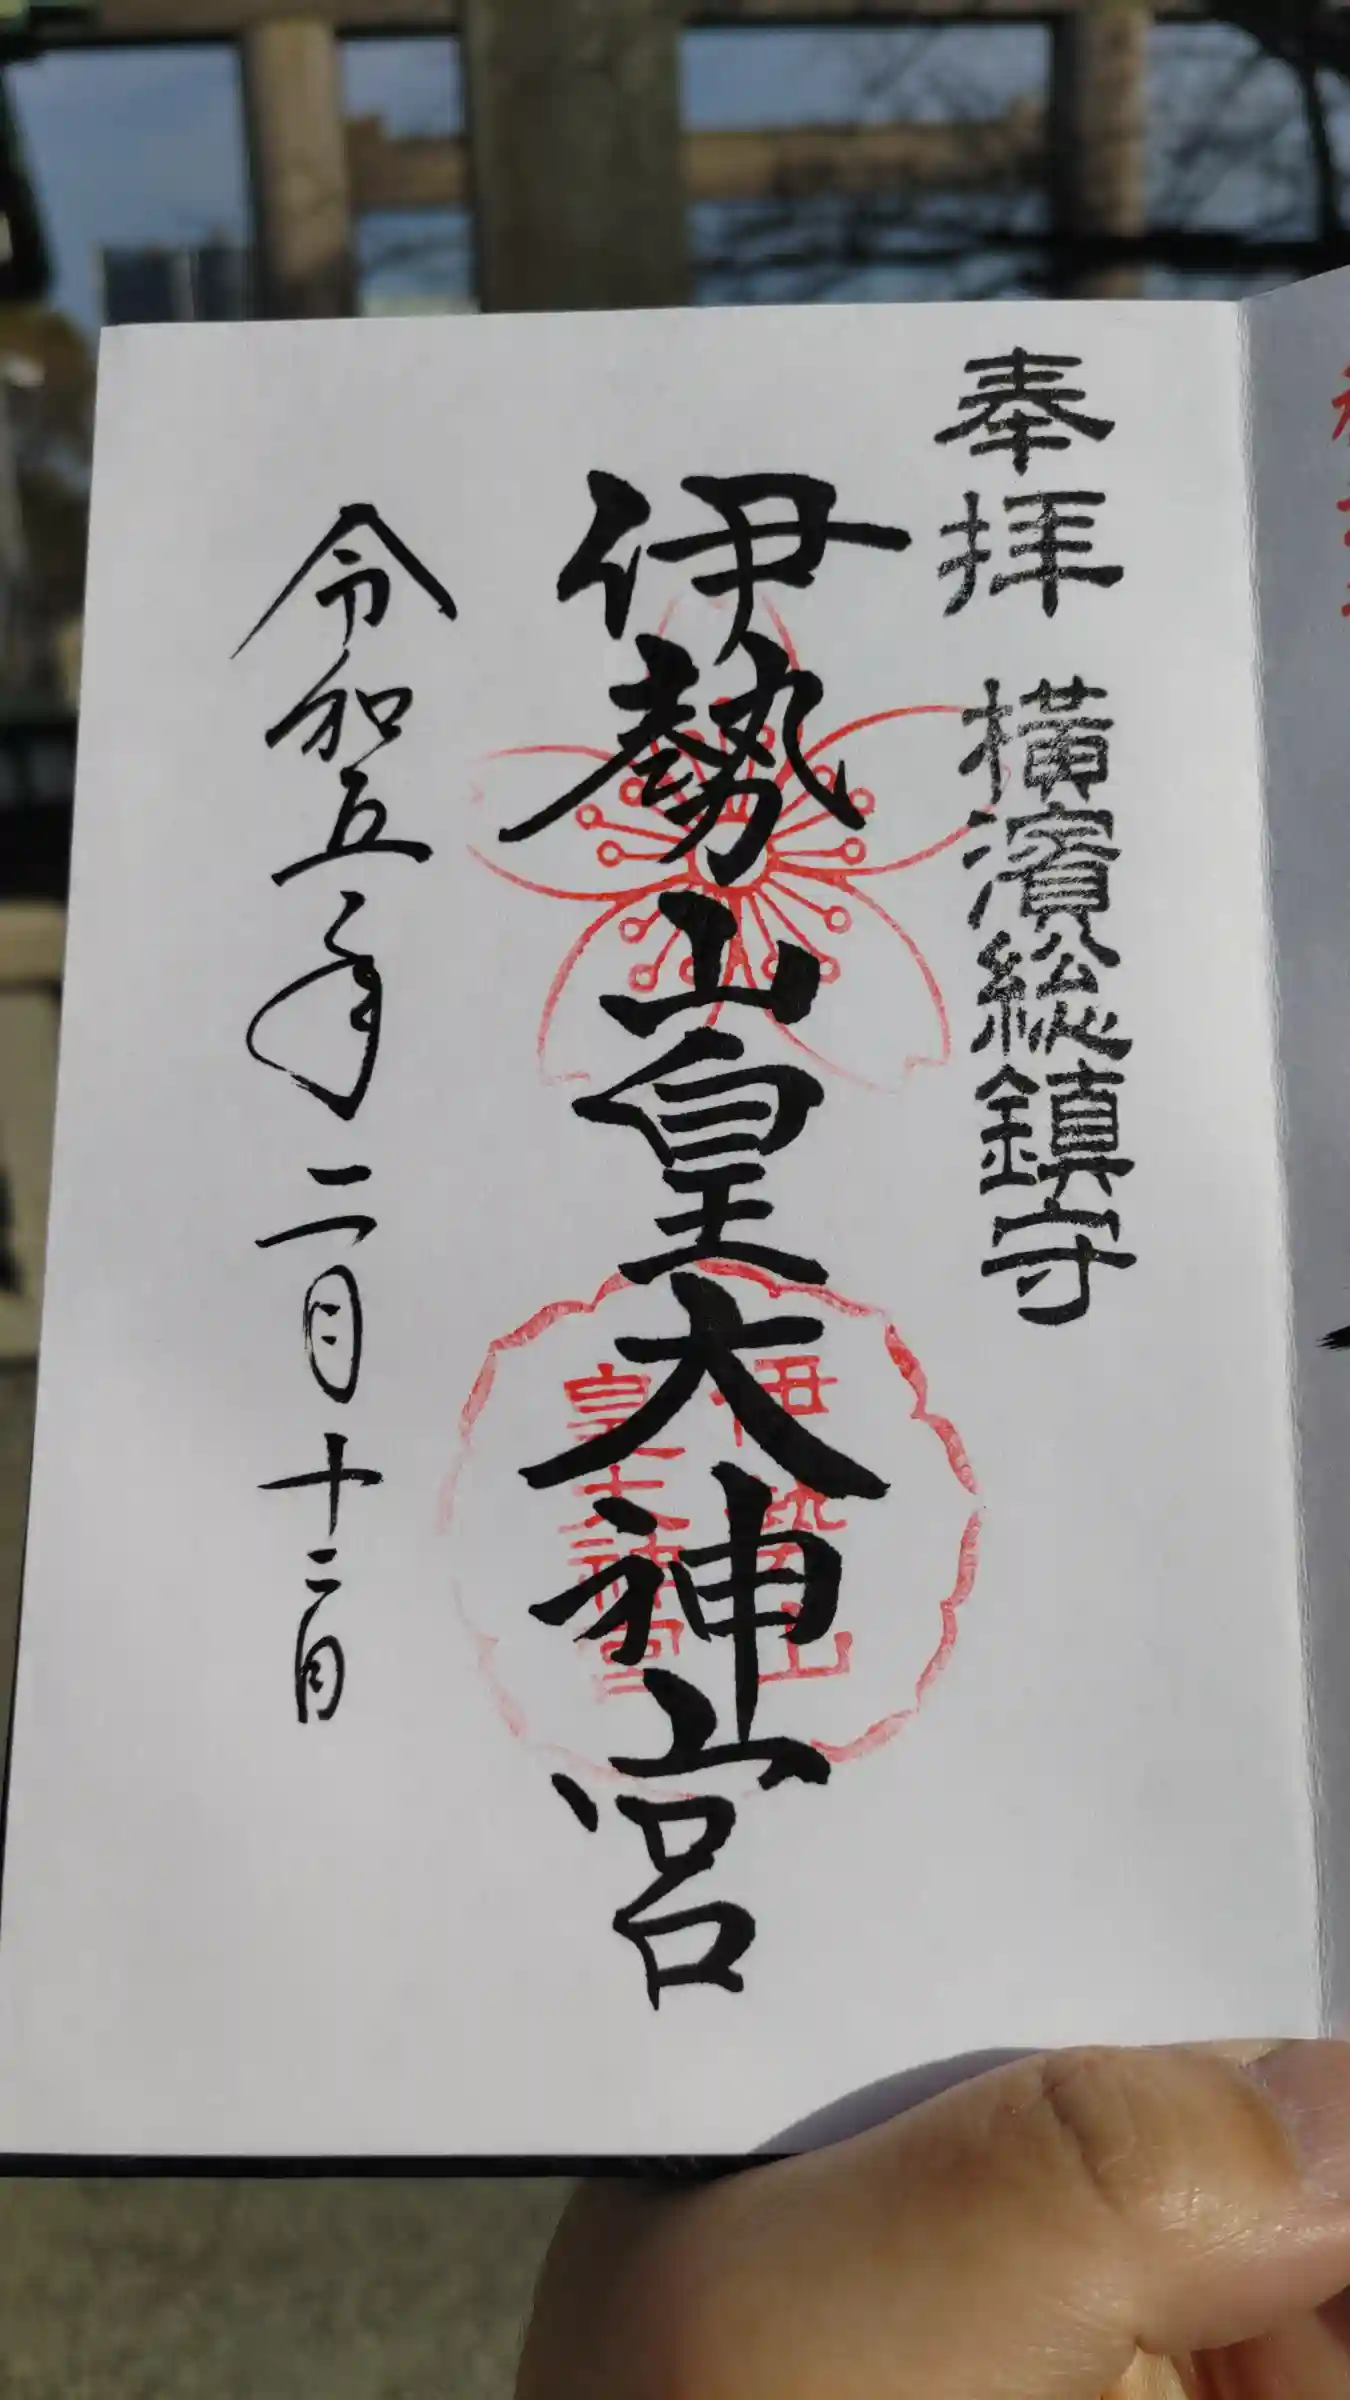 奉拝 横濱総鎮守
伊勢山皇大神宮
伊勢山
皇大神宮
令和五年二月十二日